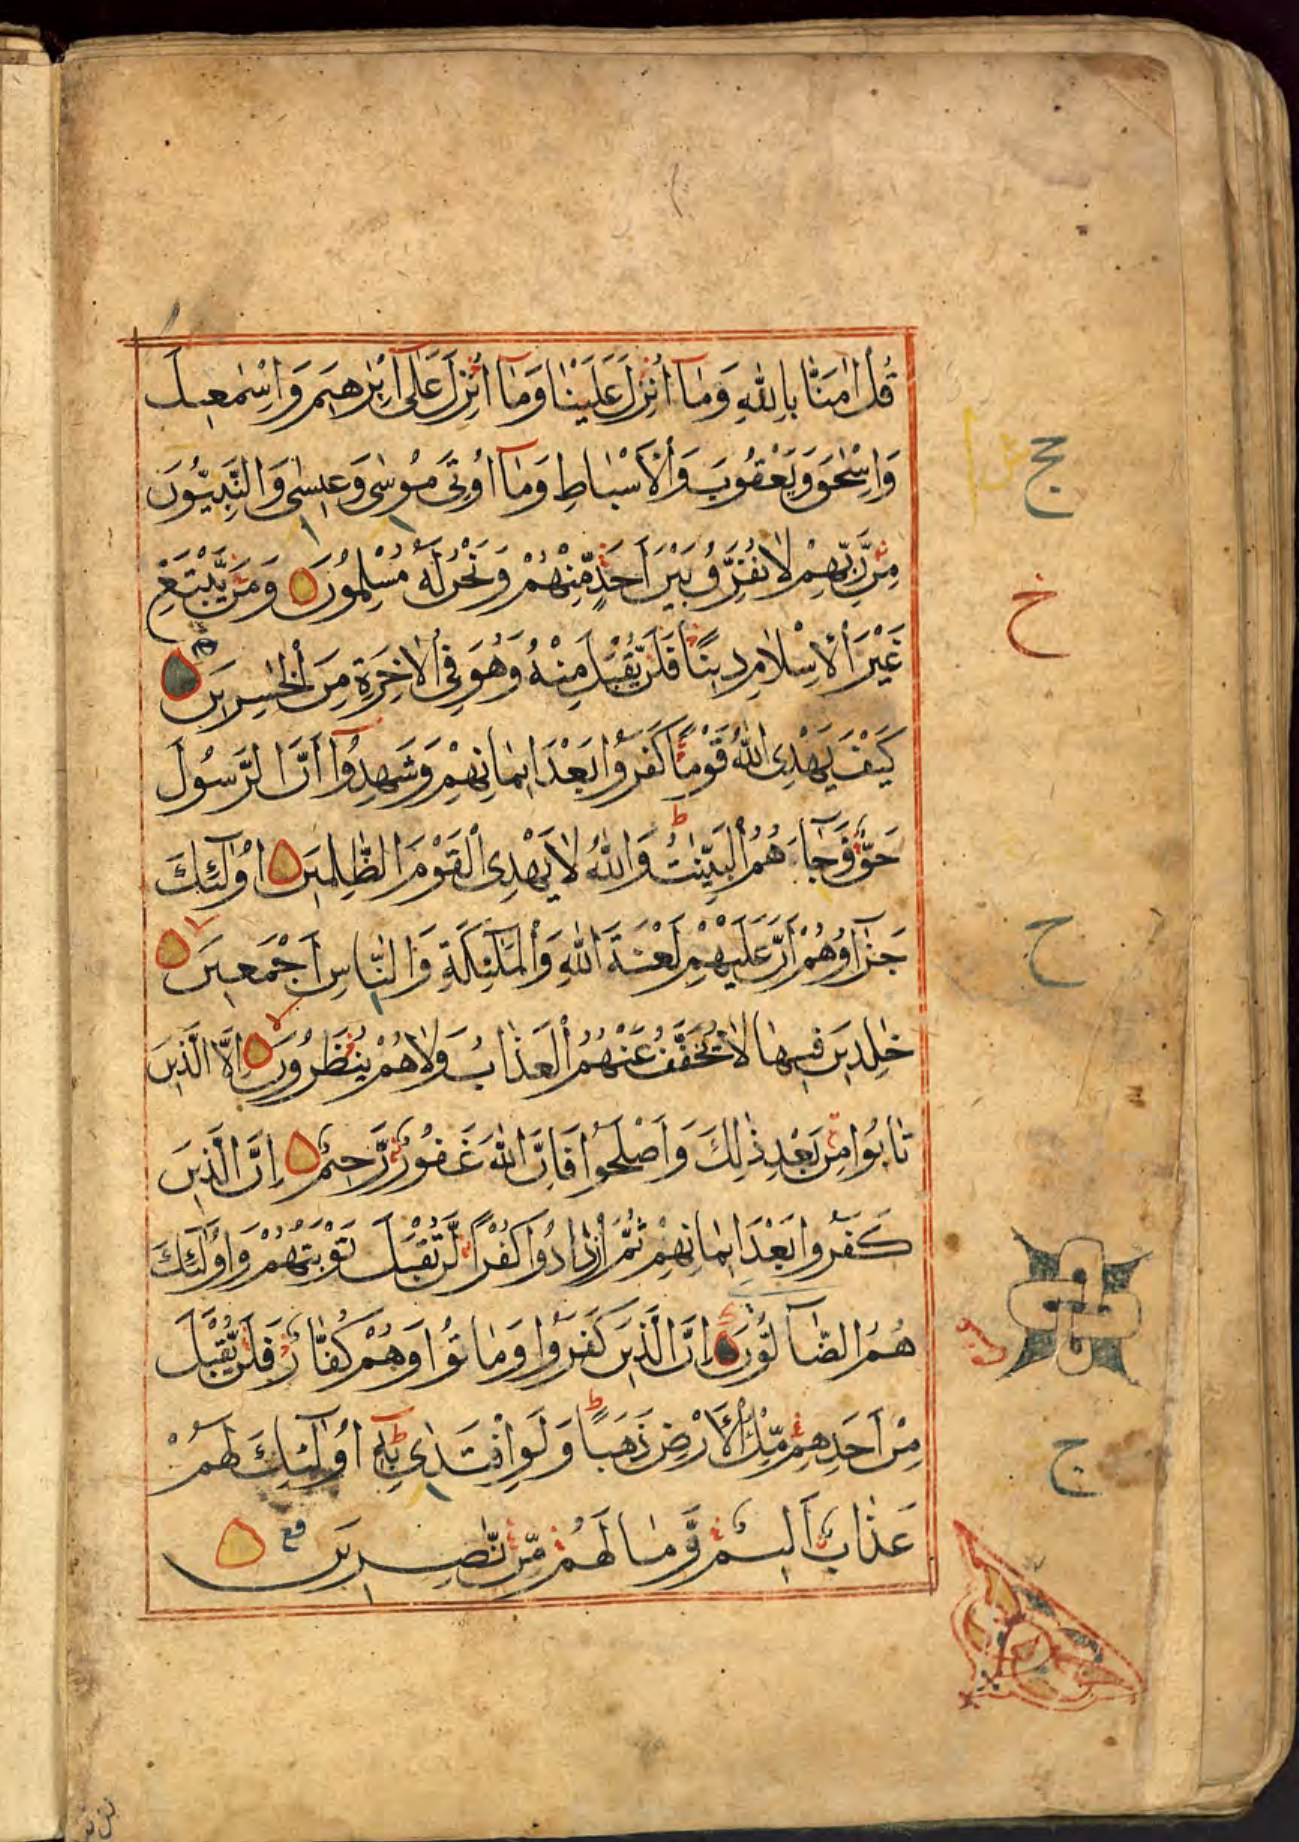 قُلْ اٰمَنَّا بِاللّٰهِ وَمَآ اُنْزِلَ عَلَيْنَا وَمَآ اُنْزِلَ عَلٰٓى اِبْرٰهِيمَ وَاِسْمٰعِيلَ
وَاِسْحٰقَ وَيَعْقُوبَ وَالْاَسْبَاطِ وَمَآ اُوتِىَ مُوسٰى وَعِيسٰى وَالنَّبِيُّونَ
مِنْ رَّبِّهِمْ لَا نُفَرِّقُ بَيْنَ اَحَدٍ مِّنْهُمْ وَنَحْنُ لَهُ مُسْلِمُونَ وَمَنْ يَّبْتَغِ
غَيْرَ الْاِسْلَامِ دِينًا فَلَنْ يُّقْبَلَ مِنْهُ وَهُوَ فِى الْاٰخِرَةِ مِنَ الْخٰسِرِينَ
كَيْفَ يَهْدِى اللّٰهُ قَوْمًا كَفَرُوا بَعْدَ اِيمَانِهِمْ وَشَهِدُوٓا اَنَّ الرَّسُولَ
حَقٌّ وَجَآءَهُمُ الْبَيِّنٰتُ وَاللّٰهُ لَا يَهْدِى الْقَوْمَ الظّٰلِمِينَ اُولٰٓئِكَ
جَزَآؤُهُمْ اَنَّ عَلَيْهِمْ لَعْنَةَ اللّٰهِ وَالْمَلٰٓئِكَةِ وَالنَّاسِ اَجْمَعِينَ
خٰلِدِينَ فِيهَا لَا يُخَفَّفُ عَنْهُمُ الْعَذَابُ وَلَا هُمْ يُنْظَرُونَ اِلَّا الَّذِينَ
تَابُوا مِنْ بَعْدِ ذٰلِكَ وَاَصْلَحُوا فَاِنَّ اللّٰهَ غَفُورٌ رَّحِيمٌ اِنَّ الَّذِينَ
كَفَرُوا بَعْدَ اِيمَانِهِمْ ثُمَّ ازْدَادُوا كُفْرًا لَّنْ تُقْبَلَ تَوْبَتُهُمْ وَاُولٰٓئِكَ
هُمُ الضَّآلُّونَ اِنَّ الَّذِينَ كَفَرُوا وَمَاتُوا وَهُمْ كُفَّارٌ فَلَنْ يُّقْبَلَ
مِنْ اَحَدِهِمْ مِّلْءُ الْاَرْضِ ذَهَبًا وَلَوِ افْتَدٰى بِهٖٓ اُولٰٓئِكَ لَهُمْ
عَذَابٌ اَلِيمٌ وَّمَا لَهُمْ مِّنْ نّٰصِرِينَ
خ
ح
ج